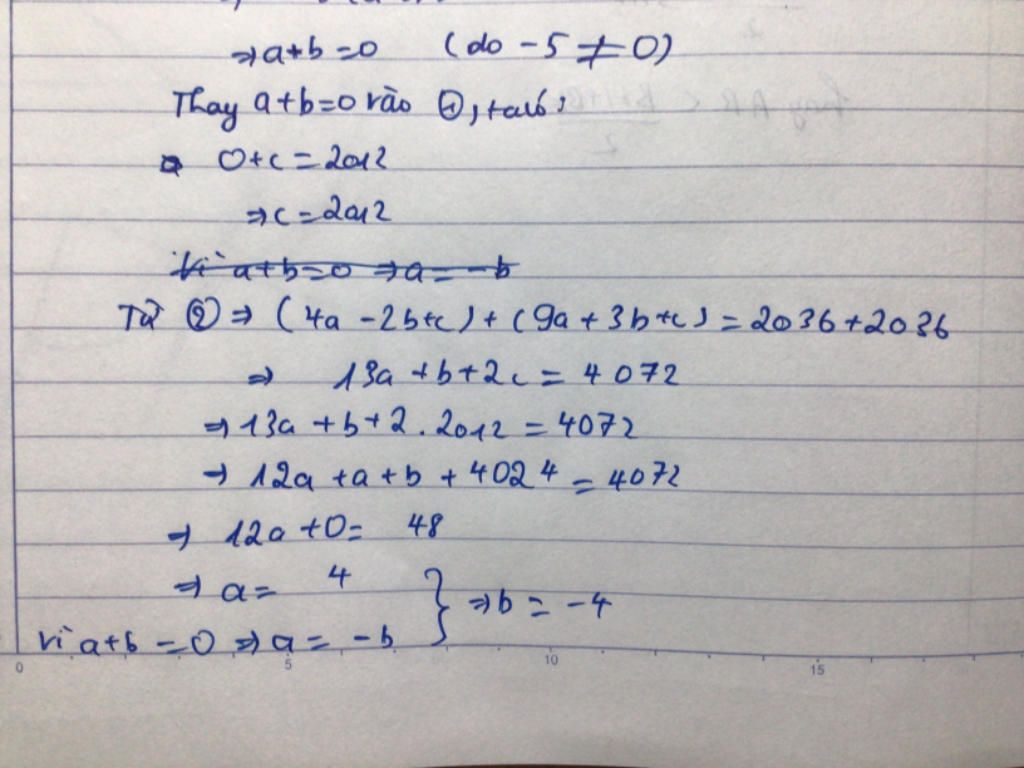 ⇒ a+b=0 (do -5 ≠ 0)
Thay a+b=0 vào ①, ta có:
0+c=2012
⇒ c=2012
Vì a+b=0 ⇒ a=-b
Từ ② ⇒ (4a-2b+c)+(9a+3b+c)=2036+2036
⇒ 13a+b+2c=4072
⇒ 13a+b+2.2012=4072
⇒ 12a+a+b+4024=4072
⇒ 12a+0= 48
⇒ a= 4
Vì a+b=0 ⇒ a=-b } ⇒ b=-4
0 5 10 15